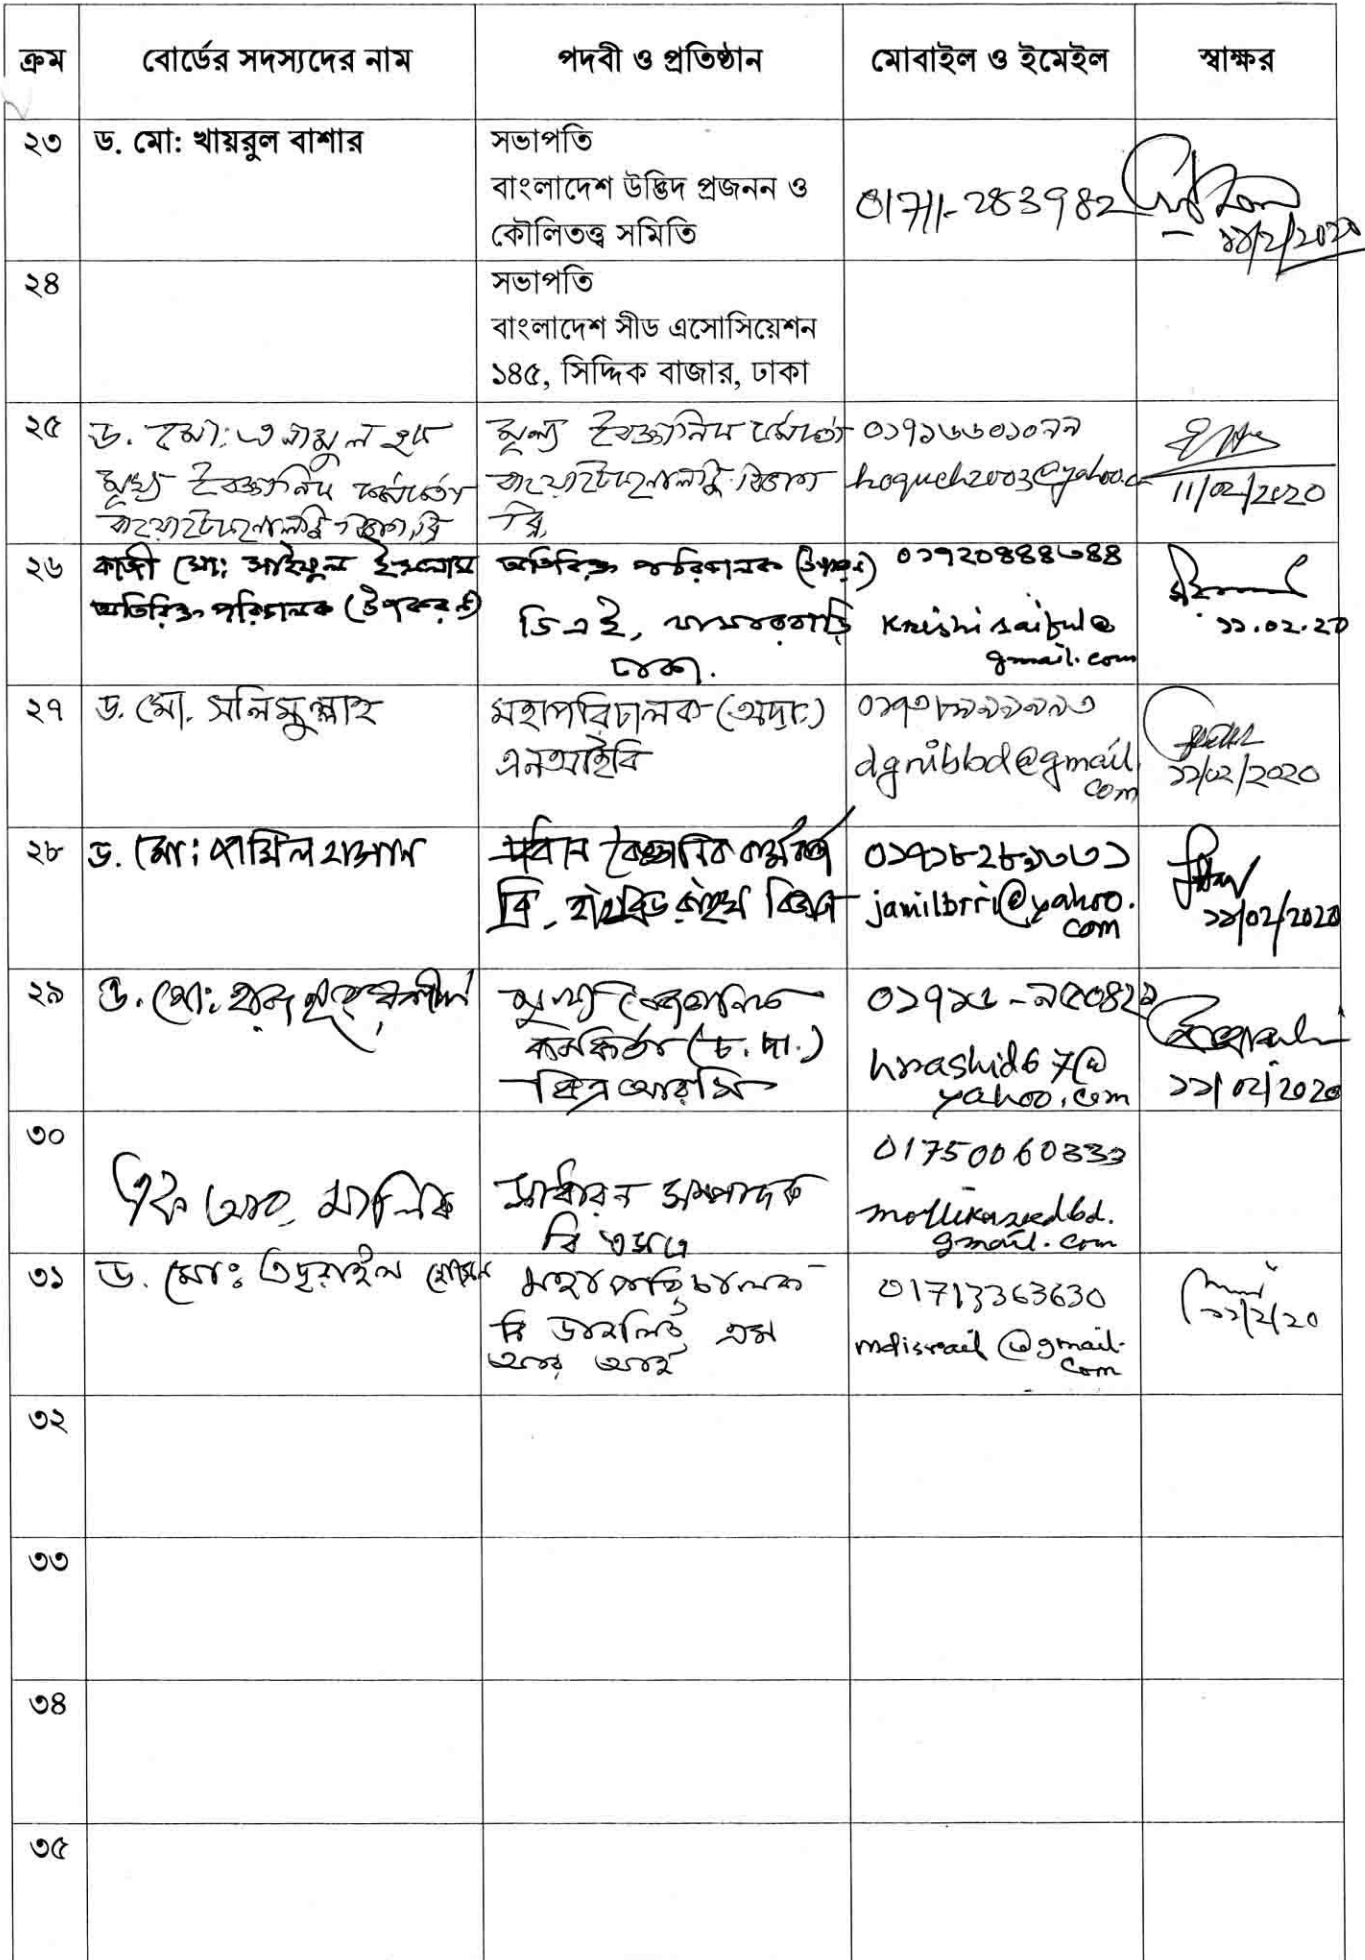 ক্রম বোর্ডের সদস্যদের নাম পদবী ও প্রতিষ্ঠান মোবাইল ও ইমেইল স্বাক্ষর
২৩ ড. মো: খায়রুল বাশার সভাপতি
বাংলাদেশ উদ্ভিদ প্রজনন ও
কৌলিতত্ত্ব সমিতি
01711-283982
১১/2/2020
২৪ সভাপতি
বাংলাদেশ সীড এসোসিয়েশন
১৪৫, সিদ্দিক বাজার, ঢাকা
২৫ ড. মো: এনামুল হক
মুখ্য বৈজ্ঞানিক কর্মকর্তা
বায়োটেকনোলজি বিভাগ, ব্রি
মুখ্য বৈজ্ঞানিক কর্মকর্তা
বায়োটেকনোলজি বিভাগ
ব্রি,
০১৭১৬৬০১০৭৭
11/02/2020
২৬ কাজী মো: সাইফুল ইসলাম
অতিরিক্ত পরিচালক (উপকরণ)
অতিরিক্ত পরিচালক (উপকরণ)
ডিএই, খামারবাড়ি
ঢাকা.
০১৭২০৪৪৪৬৪৪
krishisaiful@
gmail.com
১১.০২.২০
২৭ ড. মো. সলিমুল্লাহ
মহাপরিচালক (অ:দা:)
এনআইবি
dgnibbd@gmail.
com
১১/০২/2020
২৮ ড. মো: জামিল হাসান
প্রধান বৈজ্ঞানিক কর্মকর্তা
ব্রি, হাইব্রিড রাইস বিভাগ
jamilbrri@yahoo.
com
১১/02/2020
২৯ ড. মো: হারুনূর রশীদ
মুখ্য বৈজ্ঞানিক
কর্মকর্তা (চ. দা.)
বিএআরসি
hrrashid67@
yahoo.com
১১/02/2020
৩০ এফ আর মালিক
সাধারন সম্পাদক
বি এসএ
gmail.com
৩১ ড. মো: ইসরাইল হোসেন
মহাপরিচালক
বি ডাবলিউ এম
আর আই
01713363630
mdisrail@gmail.
com
১১/2/20
৩২
৩৩
৩৪
৩৫